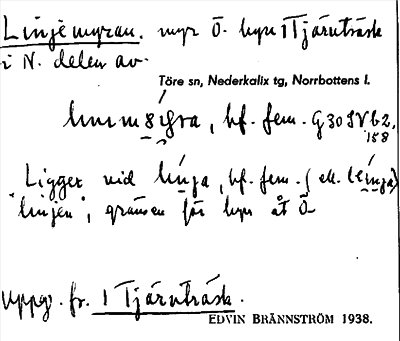 Linjemyran. myr Ö. byn 1 Tjärnträsk
i N. delen av
Töre sn, Nederkalix tg, Norrbottens l.
bf. fem. G 30 SV b 2,
158
Ligger vid línja, bf. fem. ( ell. léinja)
"linjen", gränsen för byn åt Ö
Uppg. fr. 1 Tjärnträsk.
EDVIN BRÄNNSTRÖM 1938.